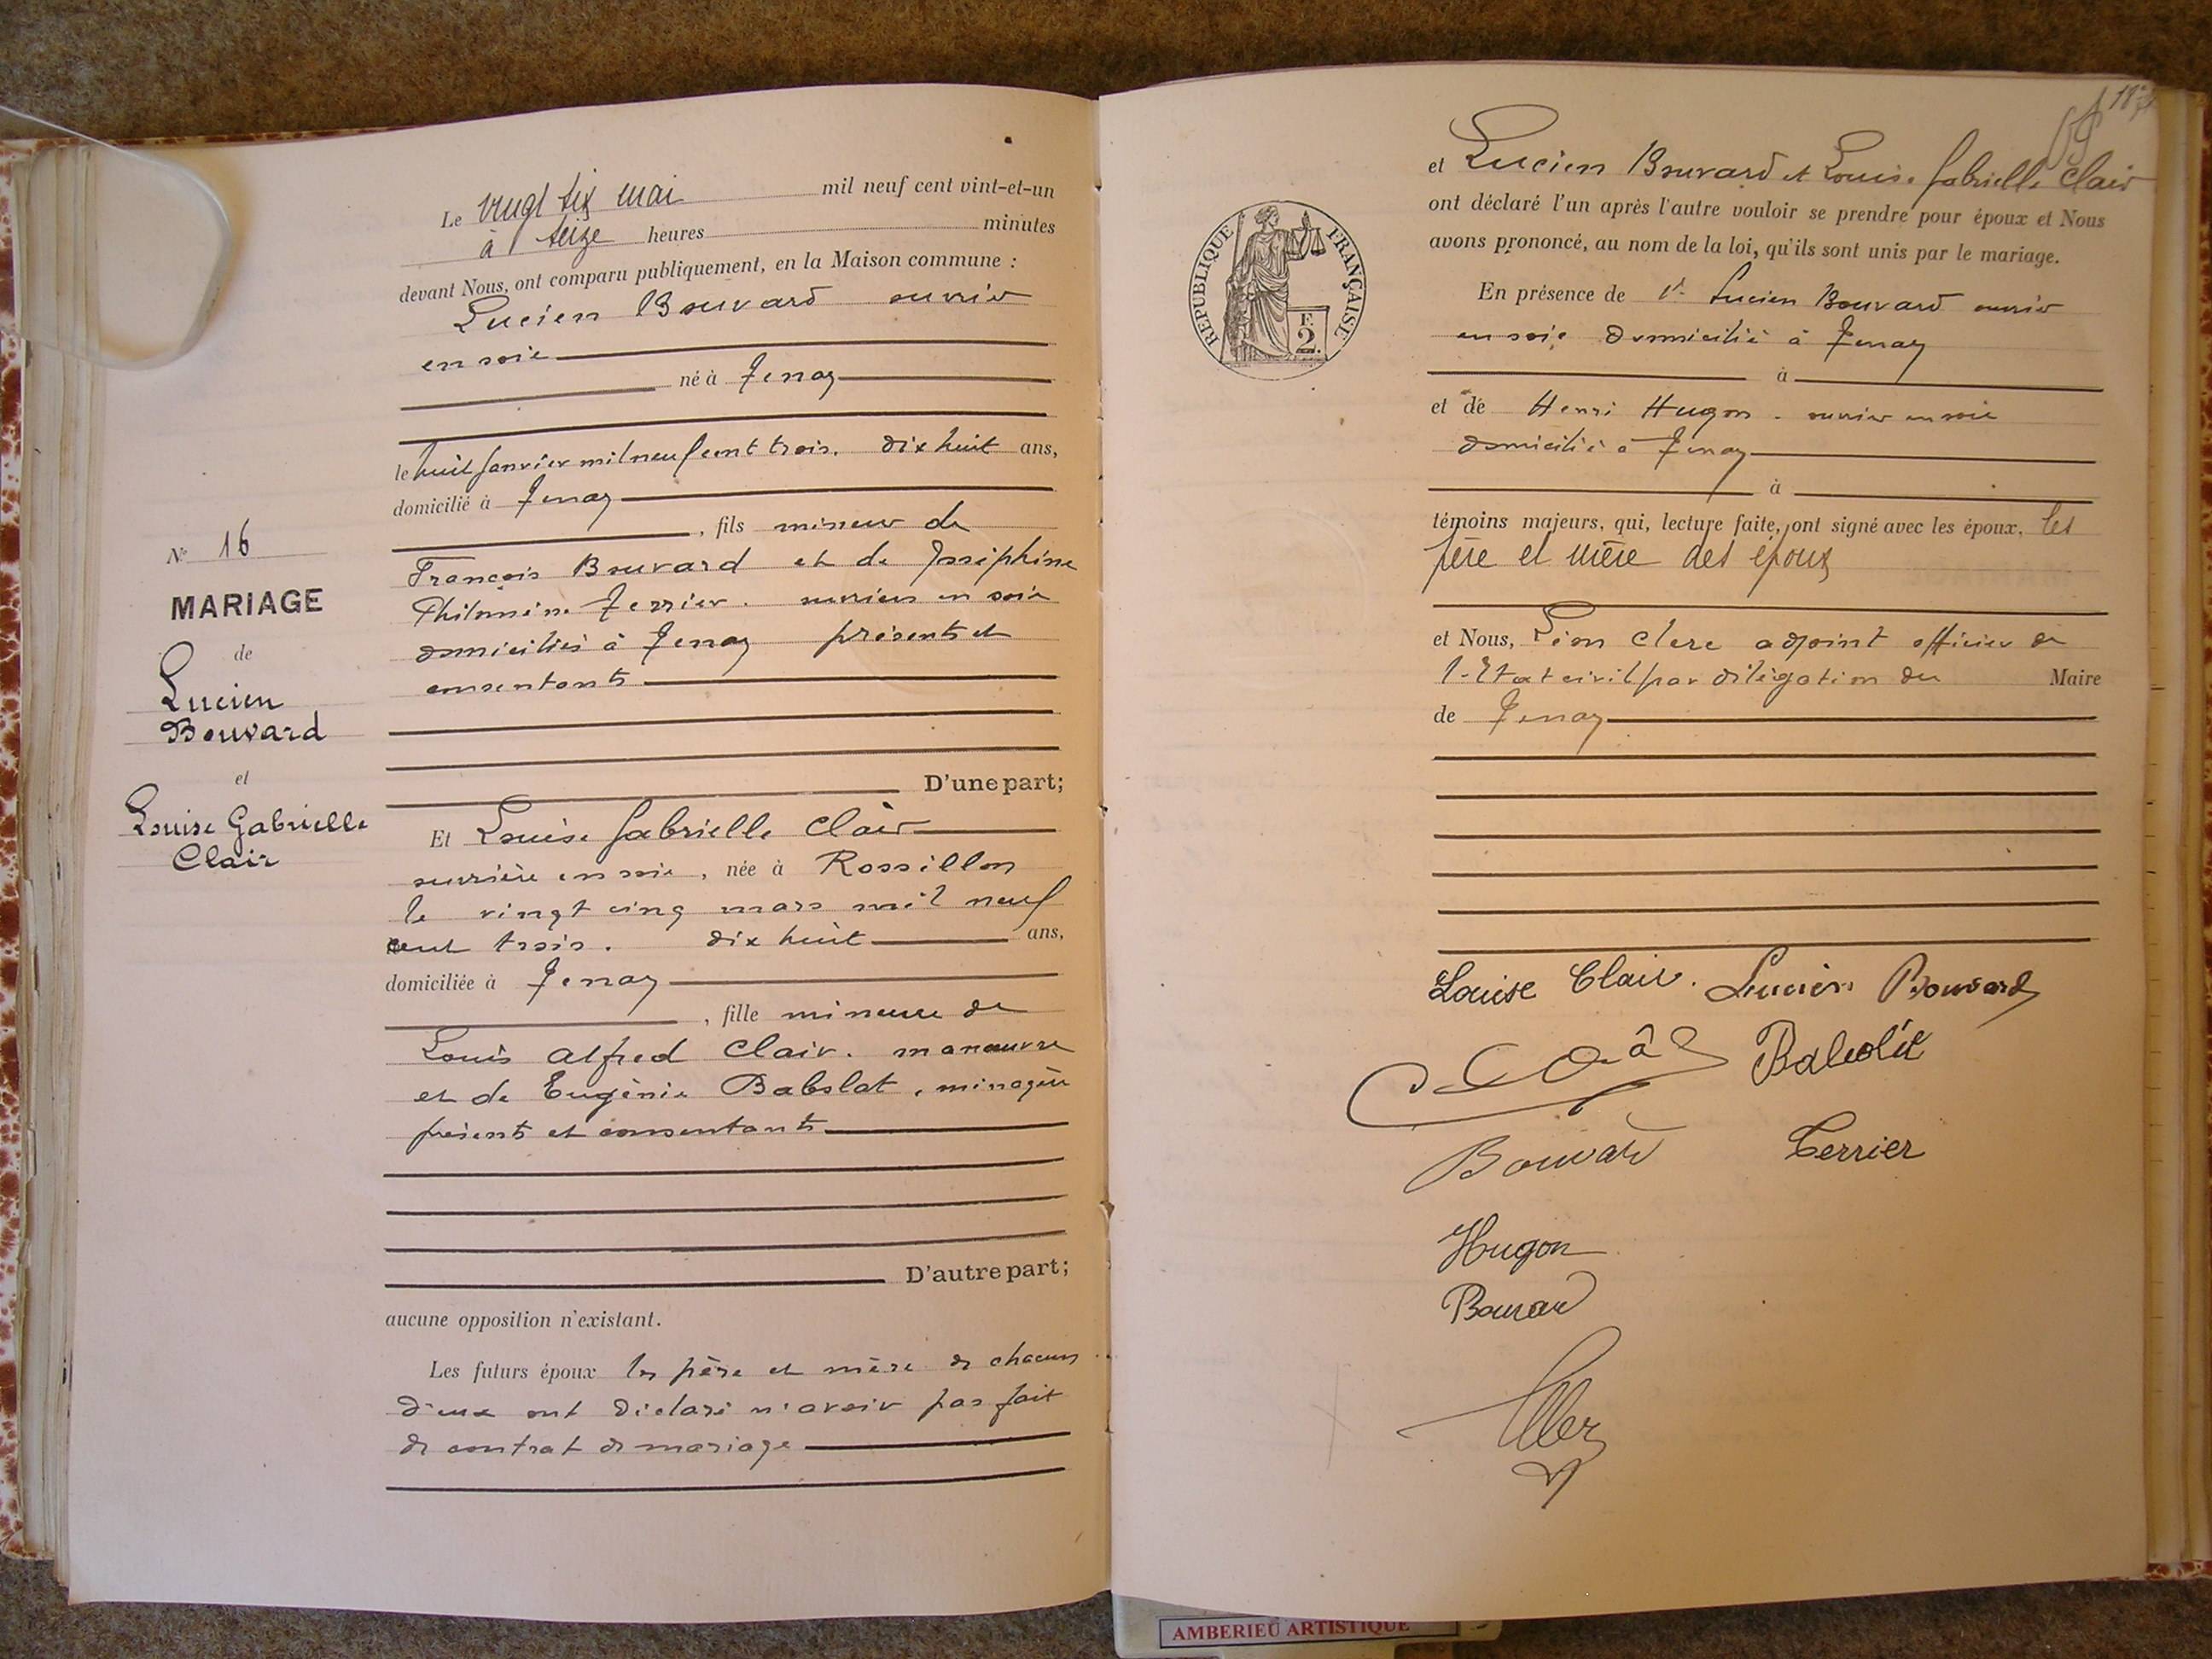 Le vingt six mai mil neuf cent vint-et-un
à seize heures minutes
devant Nous, ont comparu publiquement, en la Maison commune :
Lucien Bouvard ouvrier
en soie
né à Tenay
le huit Janvier mil neuf cent trois. dix huit ans,
domicilié à Tenay
, fils mineur de
François Bouvard et de Joséphine
Philomène Terrier. ouvriers en soie
domiciliés à Tenay présents et
consentants
D'une part;
Et Louise Gabrielle Clair
ouvrière en soie, née à Rossillon
le vingt cinq mars mil neuf
cent trois. dix huit ans,
domiciliée à Tenay
, fille mineure de
Louis Alfred Clair. manœuvre
et de Eugénie Babolat, ménagère
présents et consentants
D'autre part;
aucune opposition n'existant.
Les futurs époux les père et mère de chacun
d'eux ont déclaré n'avoir pas fait
de contrat de mariage
N° 16
MARIAGE
de
Lucien
Bouvard
et
Louise Gabrielle
Clair
et Lucien Bouvard et Louise Gabrielle Clair
ont déclaré l'un après l'autre vouloir se prendre pour époux et Nous
avons prononcé, au nom de la loi, qu'ils sont unis par le mariage.
En présence de Lucien Bouvard ouvrier
en soie domicilié à Tenay
à
et de Henri Hugon. ouvrier en soie
domicilié à Tenay
à
témoins majeurs, qui, lecture faite, ont signé avec les époux, les
père et mère des époux
et Nous, Léon Clerc adjoint officier de
l'Etat civil par délégation du Maire
de Tenay
RÉPUBLIQUE FRANÇAISE
F.
2.
Louise Clair. Lucien Bouvard
Babolat
Bouvard Terrier
Hugon
Bouvard
AMBERIEU ARTISTIQUE